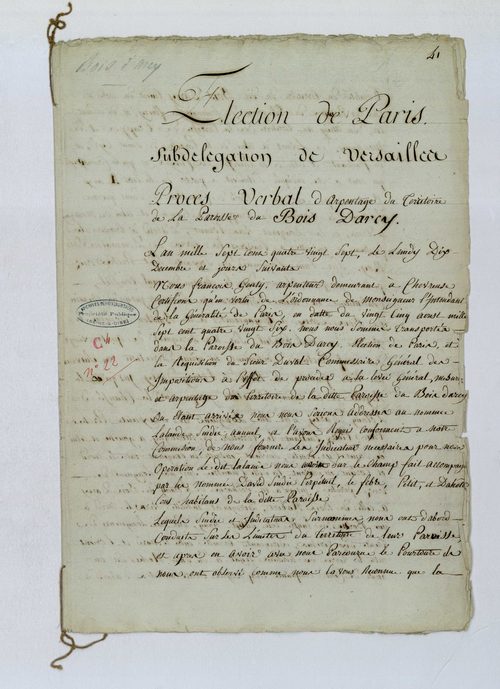 Bois d'arcy
41
Election de Paris.
Subdelegation de Versailles
1.
Proces Verbal d'Arpentage du Territoire
de La Paroisse du Bois Darcy.
L'an mille Sept cent quatre vingt Sept, le Lundy Dix
Decembre et jours Suivants
Nous françois arpenteur demeurant a Chevreuse
Certifions qu'en vertu de L'ordonnance de monseigneur l'Intendant
de la Généralité de Paris, en datte du vingt Cinq aoust mille
Sept cent quatre vingt Six, nous nous Sommes transportés
dans la Paroisse du Bois Darcy, Election de Paris, et
la Requisition du Sieur Duval Commissaire Général des
Impositions a l'effet de proceder a la levée Général, mesure
et arpentage du territoire de la ditte Paroisse du Bois darcy
Ou étant arrivés nous nous Serions addressés au nommé
Lalande Sindic annuel, et l'avons Requis conformement a notre
Commission de nous fournir les Indicateurs necessaires pour notre
Operation le dit lalande nous sur le Champ fait accompagner
par le nommé David Sindic Perpetuel, le febre, Petit, et
tous habitans de la ditte Paroisse
Lequels Sindic et Indicateurs Surnommés nous ont d'abord
Conduits Sur les Limites du territoire de leur Paroisse
et apres en avoir avec nous Parcourue le Pourtoure
nous ont observé comme nous l'avons Reconnu que la
C 4
n° 22